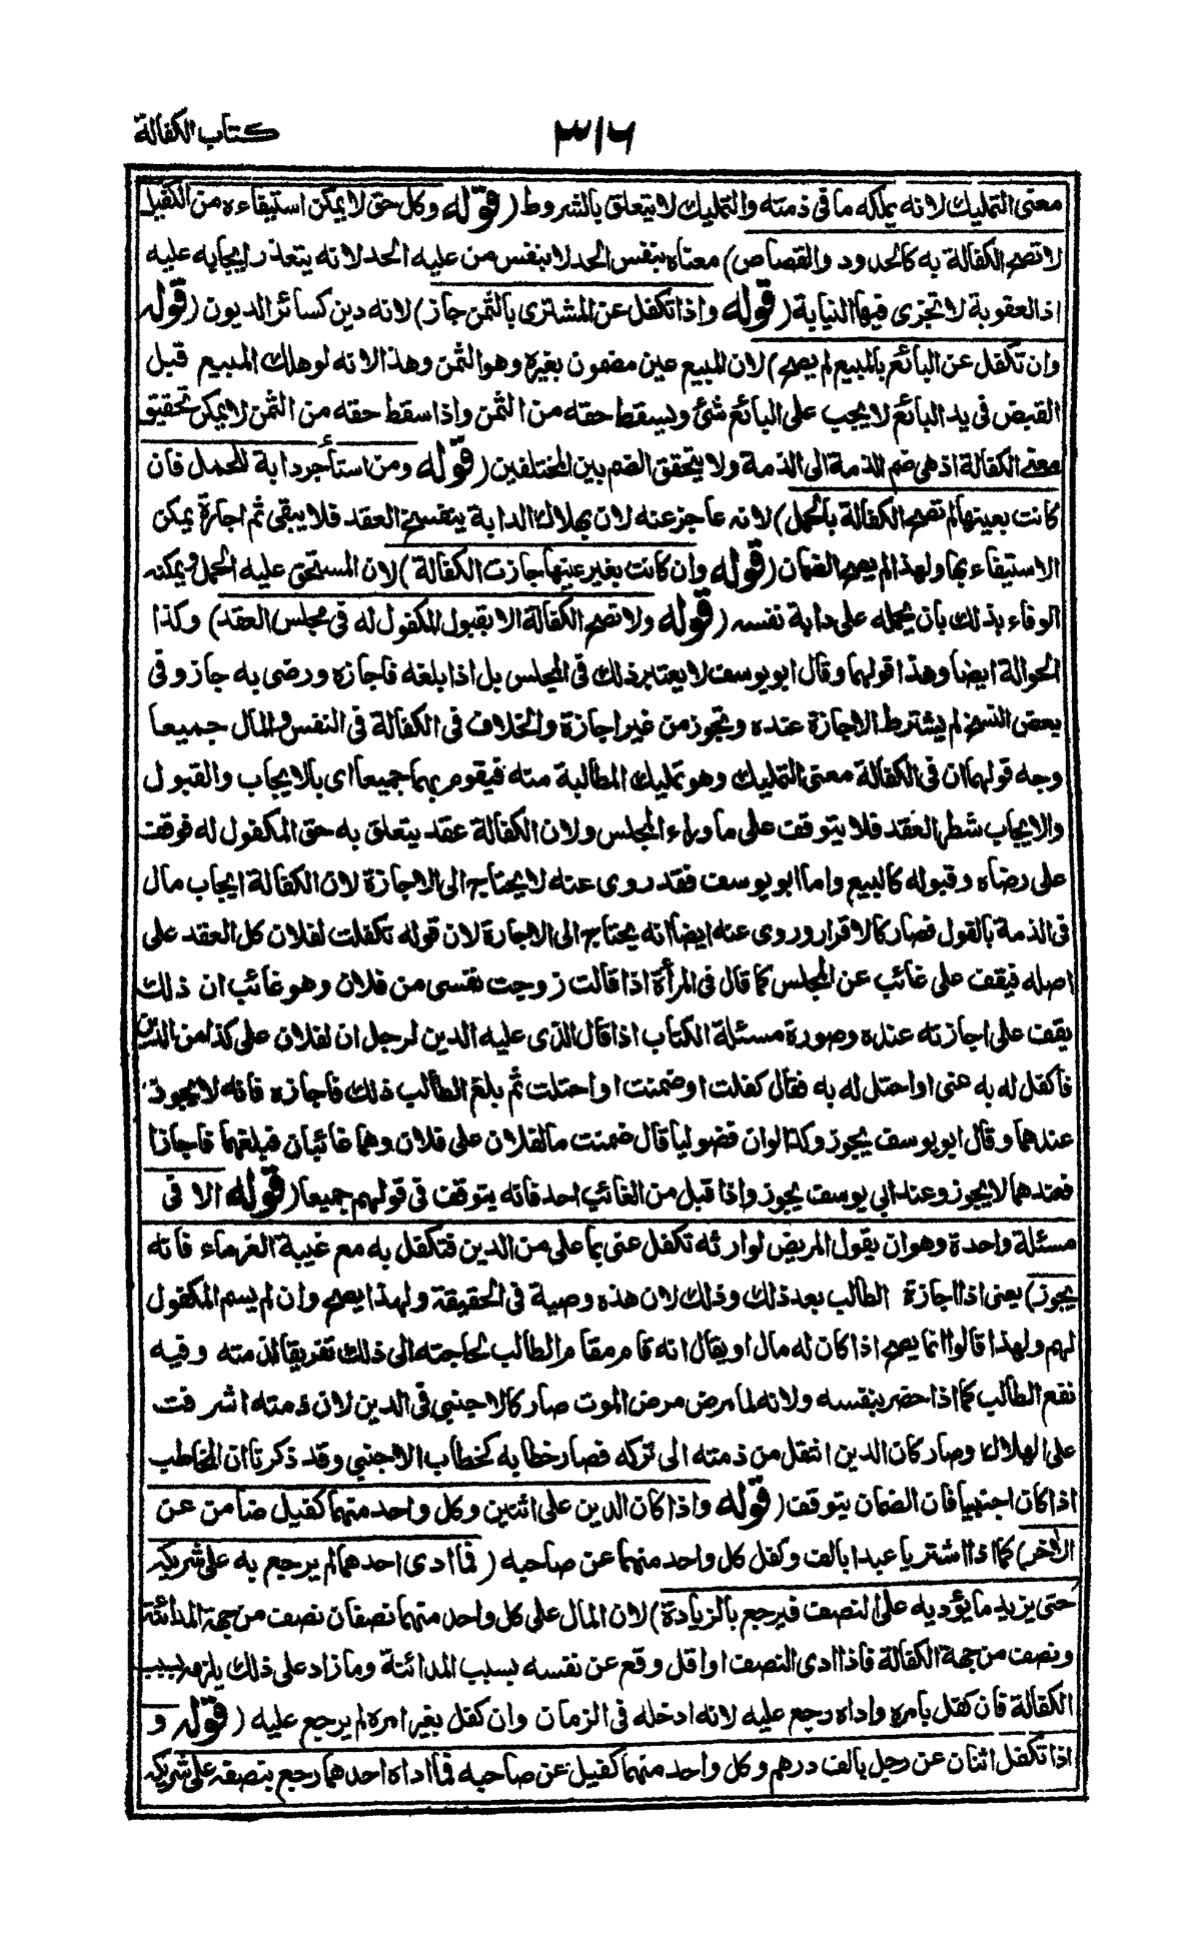 كتاب الكفالة
٣١٦
معنى التمليك لانه يملكه ما فى ذمته والتمليك لا يتعلق بالشروط (قوله وكل حق لا يمكن استيفاءه من الكفيل
لا تصح الكفالة به كالحدود والقصاص) معناه بنفس الحد لا بنفس من عليه الحد لانه يتعذر ايجابه عليه
اذ العقوبة لا تجزى فيها النيابة (قوله واذا تكفل عن المشترى بالثمن جاز) لانه دين كسائر الديون (قوله
وان تكفل عن البائع بالمبيع لم يصح) لان المبيع عين مضمون بغيره وهو الثمن وهذا لانه لو هلك المبيع قبل
القبض فى يد البائع لا يجب على البائع شئ ويسقط حقه من الثمن واذا سقط حقه من الثمن لا يمكن تحقيق
معنى الكفالة اذ هى ضم الذمة الى الذمة ولا يتحقق الضم بين المختلفين (قوله ومن استأجر دابة للحمل فان
كانت بعينها لم تصح الكفالة بالحمل) لانه عاجز عنه لان بهلاك الدابة ينفسخ العقد فلا يبقى ثم اجارة يمكن
الاستيفاء بها ولهذا لم يصح الضمان (قوله وان كانت بغير عينها جازت الكفالة) لان المستحق عليه الحمل ويمكنه
الوفاء بذلك بان يحمله على دابة نفسه (قوله ولا تصح الكفالة الا بقبول المكفول له فى مجلس العقد) وكذا
الحوالة ايضا وهذا قولهما وقال ابو يوسف لا يعتبر ذلك فى المجلس بل اذا بلغه فاجازه ورضى به جاز وفى
بعض النسخ لم يشترط الاجازة عنده وتجوز من غير اجازة والخلاف فى الكفالة فى النفس والمال جميعا
وجه قولهما ان فى الكفالة معنى التمليك وهو تمليك المطالبة منه فيقوم بهما جميعا اى بالايجاب والقبول
والايجاب شطر العقد فلا يتوقف على ما وراء المجلس ولان الكفالة عقد يتعلق به حق المكفول له فوقف
على رضاه وقبوله كالبيع واما ابو يوسف فقد روى عنه لا يحتاج الى الاجازة لان الكفالة ايجاب مال
فى الذمة بالقول فصار كالاقرار وروى عنه ايضا انه يحتاج الى الاجازة لان قوله تكفلت لفلان كل العقد على
اصله فيقف على غائب عن المجلس كما قال فى المرأة اذا قالت زوجت نفسى من فلان وهو غائب ان ذلك
يقف على اجازته عنده وصورة مسئلة الكتاب اذا قال الذى عليه الدين لرجل ان لفلان على كذا من الدين
فاكفل له به عنى او احتل له به فقال كفلت او ضمنت او احتلت ثم بلغ الطالب ذلك فاجازه فانه لا يجوز
عندهما وقال ابو يوسف يجوز وكذا لو ان فضوليا قال ضمنت ما لفلان على فلان وهما غائبان فبلغهما فاجازا
فعندهما لا يجوز وعند ابي يوسف يجوز واذا قبل من الغائب احد فانه يتوقف فى قولهم جميعا (قوله الا فى
مسئلة واحدة وهو ان يقول المريض لوارثه تكفل عنى بما على من الدين فتكفل به مع غيبة الغرماء فانه
يجوز) يعنى اذا اجازة الطالب بعد ذلك وذلك لان هذه وصية فى الحقيقة ولهذا يصح وان لم يسم المكفول
لهم ولهذا قالوا انما يصح اذا كان له مال او يقال انه قام مقام الطالب لحاجته الى ذلك تفريقا لذمته وفيه
نفع الطالب كما اذا حضر بنفسه ولانه لما مرض مرض الموت صار كالاجنبي فى الدين لان ذمته اشرفت
على الهلاك وصار كان الدين انتقل من ذمته الى تركه فصار خطابه كخطاب الاجنبي وقد ذكرنا ان المخاطب
اذا كان اجنبيا فان الضمان يتوقف (قوله واذا كان الدين على اثنين وكل واحد منهما كفيل ضامن عن
الآخر) كما اذا اشتريا عبدا بالف وكفل كل واحد منهما عن صاحبه (فما ادى احدهما لم يرجع به على شريكه
حتى يزيد ما يؤديه على النصف فيرجع بالزيادة) لان المال على كل واحد منهما نصفان نصف من جهة المدائنة
ونصف من جهة الكفالة فاذا ادى النصف او اقل وقع عن نفسه بسبب المدائنة وما زاد على ذلك يلزمه بسبب
الكفالة فان كفل بامره واداه رجع عليه لانه ادخله فى الزمان وان كفل بغير امره لم يرجع عليه (قوله و
اذا تكفل اثنان عن رجل بالف درهم وكل واحد منهما كفيل عن صاحبه فما اداه احدهما رجع بنصفه على شريكه